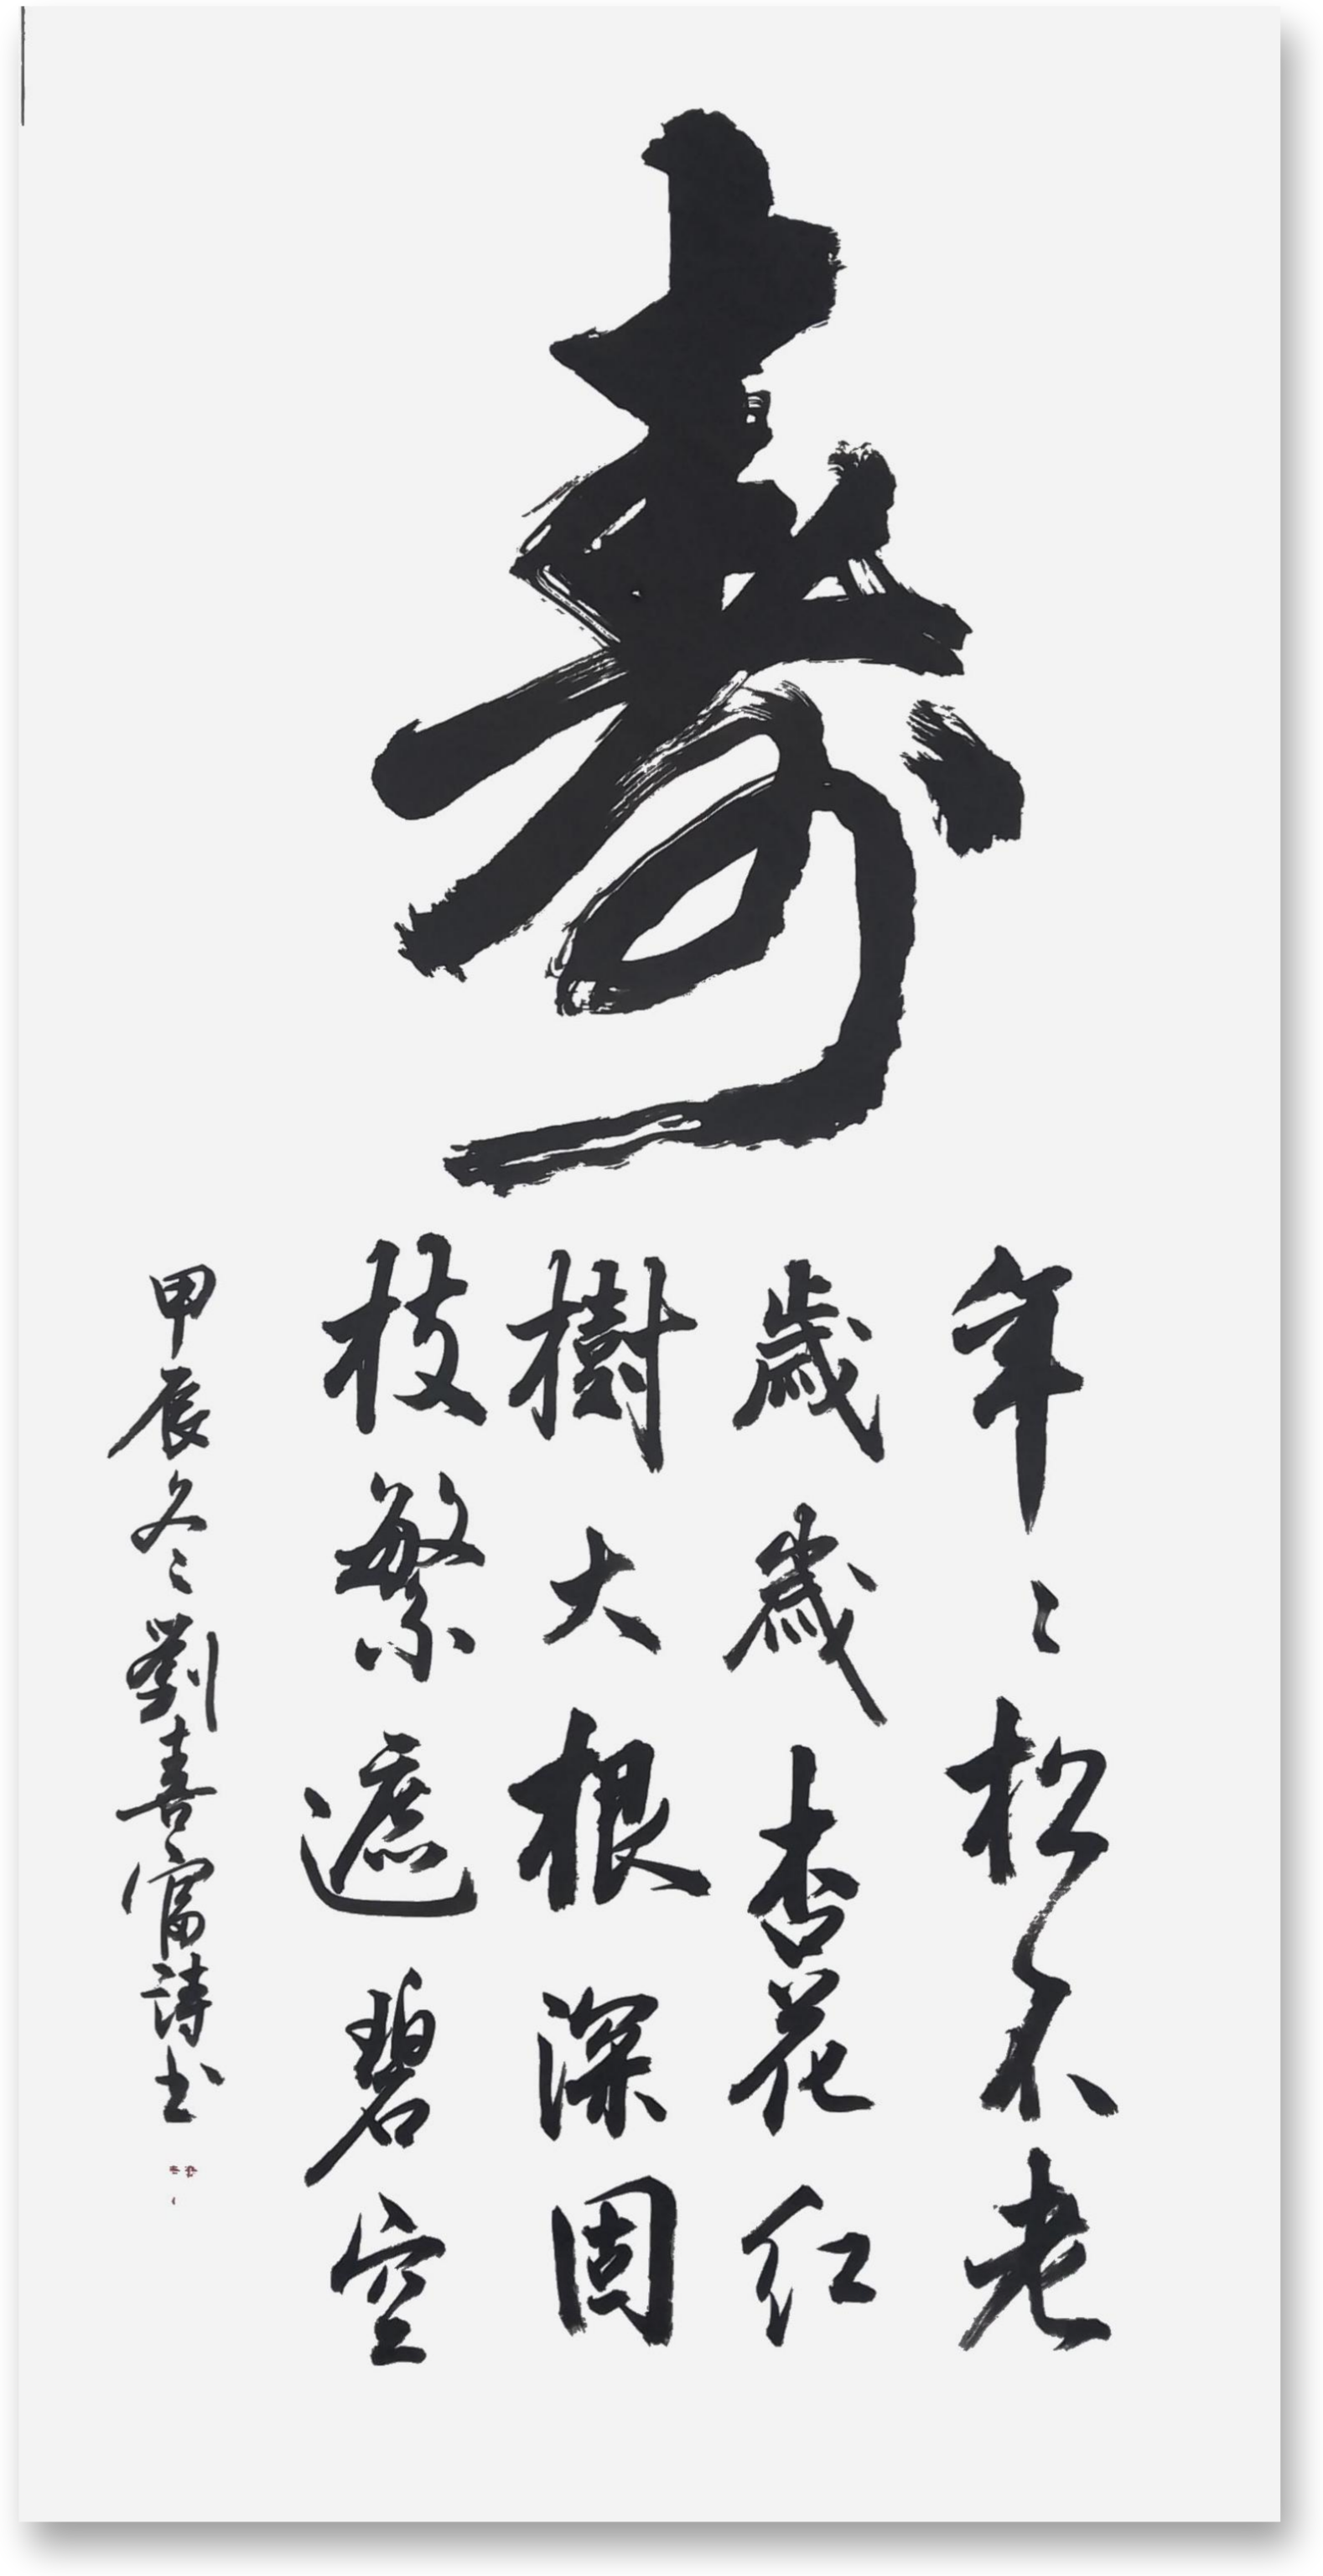 寿
年〻松不老
歲歲杏花红
樹大根深固
枝繁遮碧空
甲辰冬〻劉喜富詩书